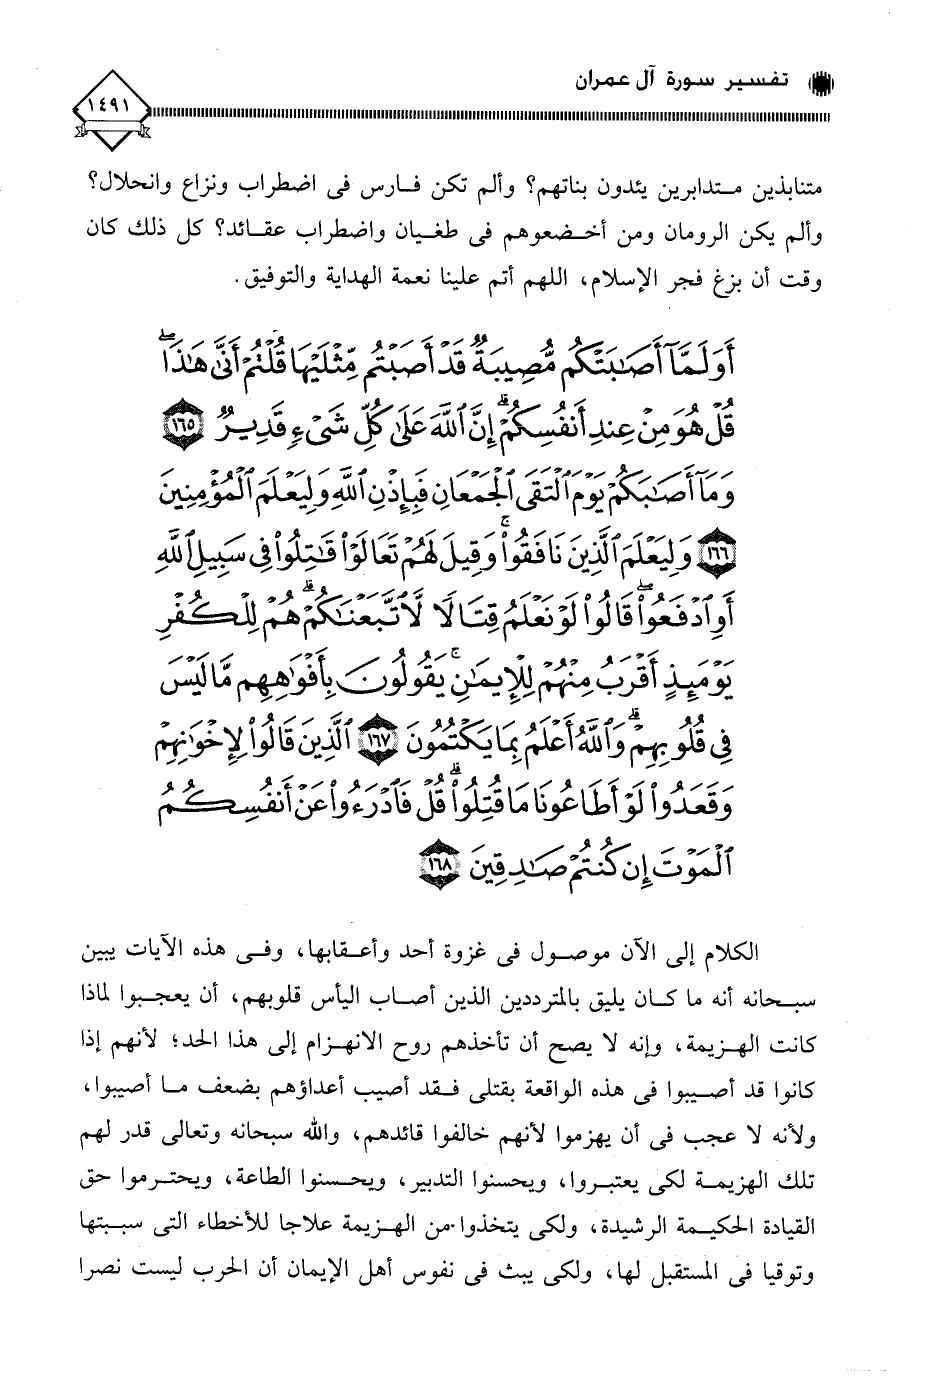 تفسير سورة آل عمران
١٤٩١
متنابذين متدابرين يئدون بناتهم؟ وألم تكن فارس فى اضطراب ونزاع وانحلال؟
وألم يكن الرومان ومن أخضعوهم فى طغيان واضطراب عقائد؟ كل ذلك كان
وقت أن بزغ فجر الإسلام، اللهم أتم علينا نعمة الهداية والتوفيق.
أَوَلَمَّآ أَصَٰبَتْكُم مُّصِيبَةٌ قَدْ أَصَبْتُم مِّثْلَيْهَا قُلْتُمْ أَنَّىٰ هَٰذَا ۖ
قُلْ هُوَ مِنْ عِندِ أَنفُسِكُمْ ۗ إِنَّ ٱللَّهَ عَلَىٰ كُلِّ شَىْءٍ قَدِيرٌ ١٦٥
وَمَآ أَصَٰبَكُمْ يَوْمَ ٱلْتَقَى ٱلْجَمْعَانِ فَبِإِذْنِ ٱللَّهِ وَلِيَعْلَمَ ٱلْمُؤْمِنِينَ
١٦٦ وَلِيَعْلَمَ ٱلَّذِينَ نَافَقُوا۟ ۚ وَقِيلَ لَهُمْ تَعَالَوْا۟ قَٰتِلُوا۟ فِى سَبِيلِ ٱللَّهِ
أَوِ ٱدْفَعُوا۟ ۖ قَالُوا۟ لَوْ نَعْلَمُ قِتَالًا لَّٱتَّبَعْنَٰكُمْ ۗ هُمْ لِلْكُفْرِ
يَوْمَئِذٍ أَقْرَبُ مِنْهُمْ لِلْإِيمَٰنِ ۚ يَقُولُونَ بِأَفْوَٰهِهِم مَّا لَيْسَ
فِى قُلُوبِهِمْ ۗ وَٱللَّهُ أَعْلَمُ بِمَا يَكْتُمُونَ ١٦٧ ٱلَّذِينَ قَالُوا۟ لِإِخْوَٰنِهِمْ
وَقَعَدُوا۟ لَوْ أَطَاعُونَا مَا قُتِلُوا۟ ۗ قُلْ فَٱدْرَءُوا۟ عَنْ أَنفُسِكُمُ
ٱلْمَوْتَ إِن كُنتُمْ صَٰدِقِينَ ١٦٨
الكلام إلى الآن موصول فى غزوة أحد وأعقابها، وفى هذه الآيات يبين
سبحانه أنه ما كان يليق بالمترددين الذين أصاب اليأس قلوبهم، أن يعجبوا لماذا
كانت الهزيمة، وإنه لا يصح أن تأخذهم روح الانهزام إلى هذا الحد؛ لأنهم إذا
كانوا قد أصيبوا فى هذه الواقعة بقتلى فقد أصيب أعداؤهم بضعف ما أصيبوا،
ولأنه لا عجب فى أن يهزموا لأنهم خالفوا قائدهم، والله سبحانه وتعالى قدر لهم
تلك الهزيمة لكى يعتبروا، ويحسنوا التدبير، ويحسنوا الطاعة، ويحترموا حق
القيادة الحكيمة الرشيدة، ولكى يتخذوا من الهزيمة علاجا للأخطاء التى سببتها
وتوقيا فى المستقبل لها، ولكى يبث فى نفوس أهل الإيمان أن الحرب ليست نصرا